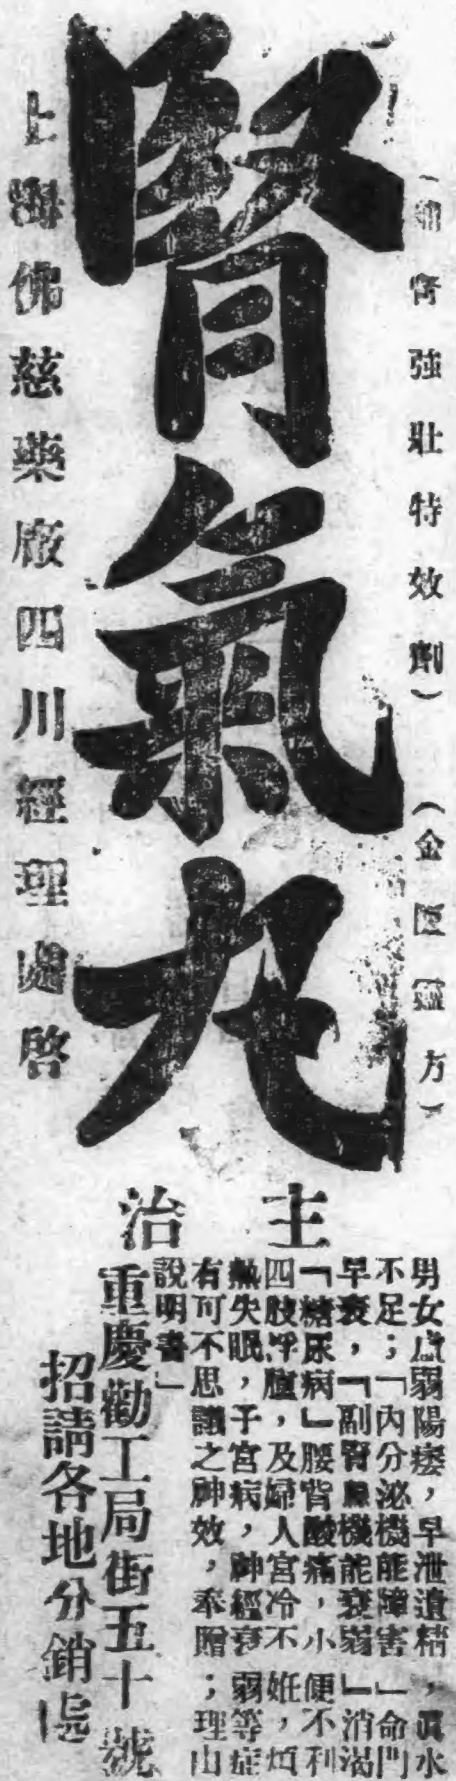 (補腎強壯特效劑)
(金匱靈方)
腎氣丸
上海佛慈藥廠四川經理處啓
主治
男女虛弱陽痿，早泄遺精，眞水
不足；「內分泌機能障害」命門
早衰，「副腎腺機能衰弱」消渴
「糖尿病」腰背酸痛，小便不利
四肢浮腫，及婦人宮冷不姙，煩
熱失眠，子宮病，神經衰弱等症
有可不思議之神效，奉贈；理由
說明書」
重慶勸工局街五十號
招請各地分銷處